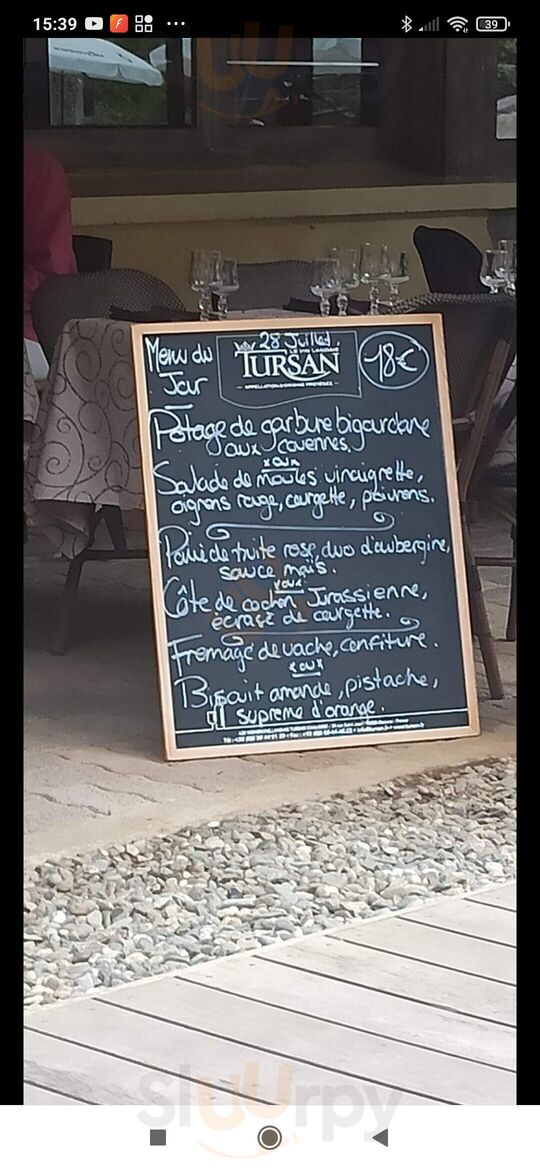 15:39
39
28 Juillet.
Menu du
Jour
LE VIN LANDAIS
TURSAN
APPELLATION D'ORIGINE PROTÉGÉE
18€
Potage de garbure bigourdane
aux couennes.
xoux
Salade de moules vinaigrette,
oignons rouge, courgette, poivrons.
Pavé de truite rose, duo d'aubergine,
sauce maïs.
xoux
Côte de cochon Jurassienne,
écrasé de courgette.
Fromage de vache, confiture.
xoux
Biscuit amande, pistache,
suprême d'orange.
Sluurpy